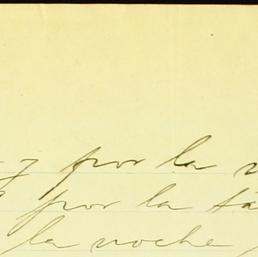 y por la
por la
la noche,